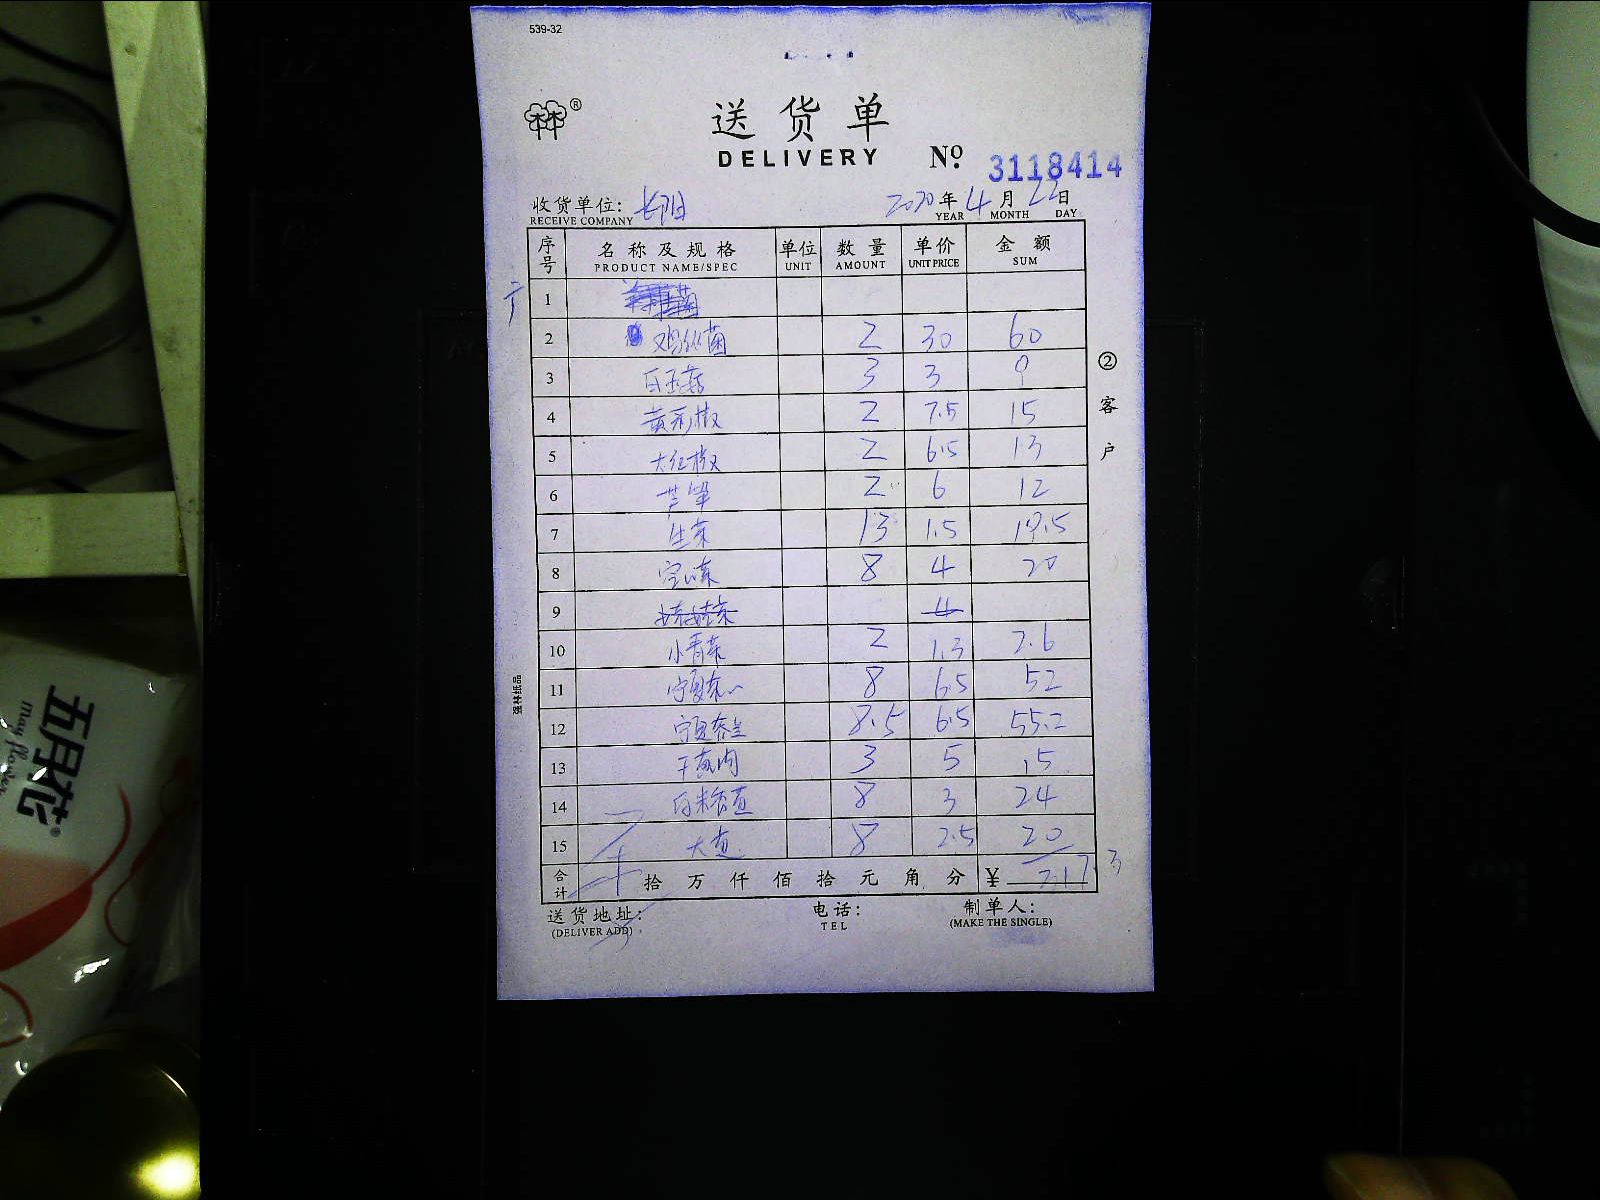 539-32
林®
送货单
DELIVERY No 3118414
收货单位: 长阳 2020年4月22日
RECEIVE COMPANY YEAR MONTH DAY
序号 名称及规格 单位 数量 单价 金额
PRODUCT NAME/SPEC UNIT AMOUNT UNIT PRICE SUM
1
2 鸡枞菌 2 30 60
3 白玉菇 3 3 9
4 黄彩椒 2 7.5 15
5 大红椒 2 6.5 13
6 芦笋 2 6 12
7 生菜 13 1.5 19.5
8 8 4 20
9 娃娃菜 4
10 小青菜 2 1.3 2.6
11 宁夏菜 8 6.5 52
12 宁夏菜 8.5 6.5 55.2
13 3 5 15
14 8 3 24
15 大 8 2.5 20
合计 拾万仟佰拾元角分 ¥ 317 3
送货地址: 电话: 制单人:
(DELIVER ADD) TEL (MAKE THE SINGLE)
②客户
强林纸品
五月花®
May flower